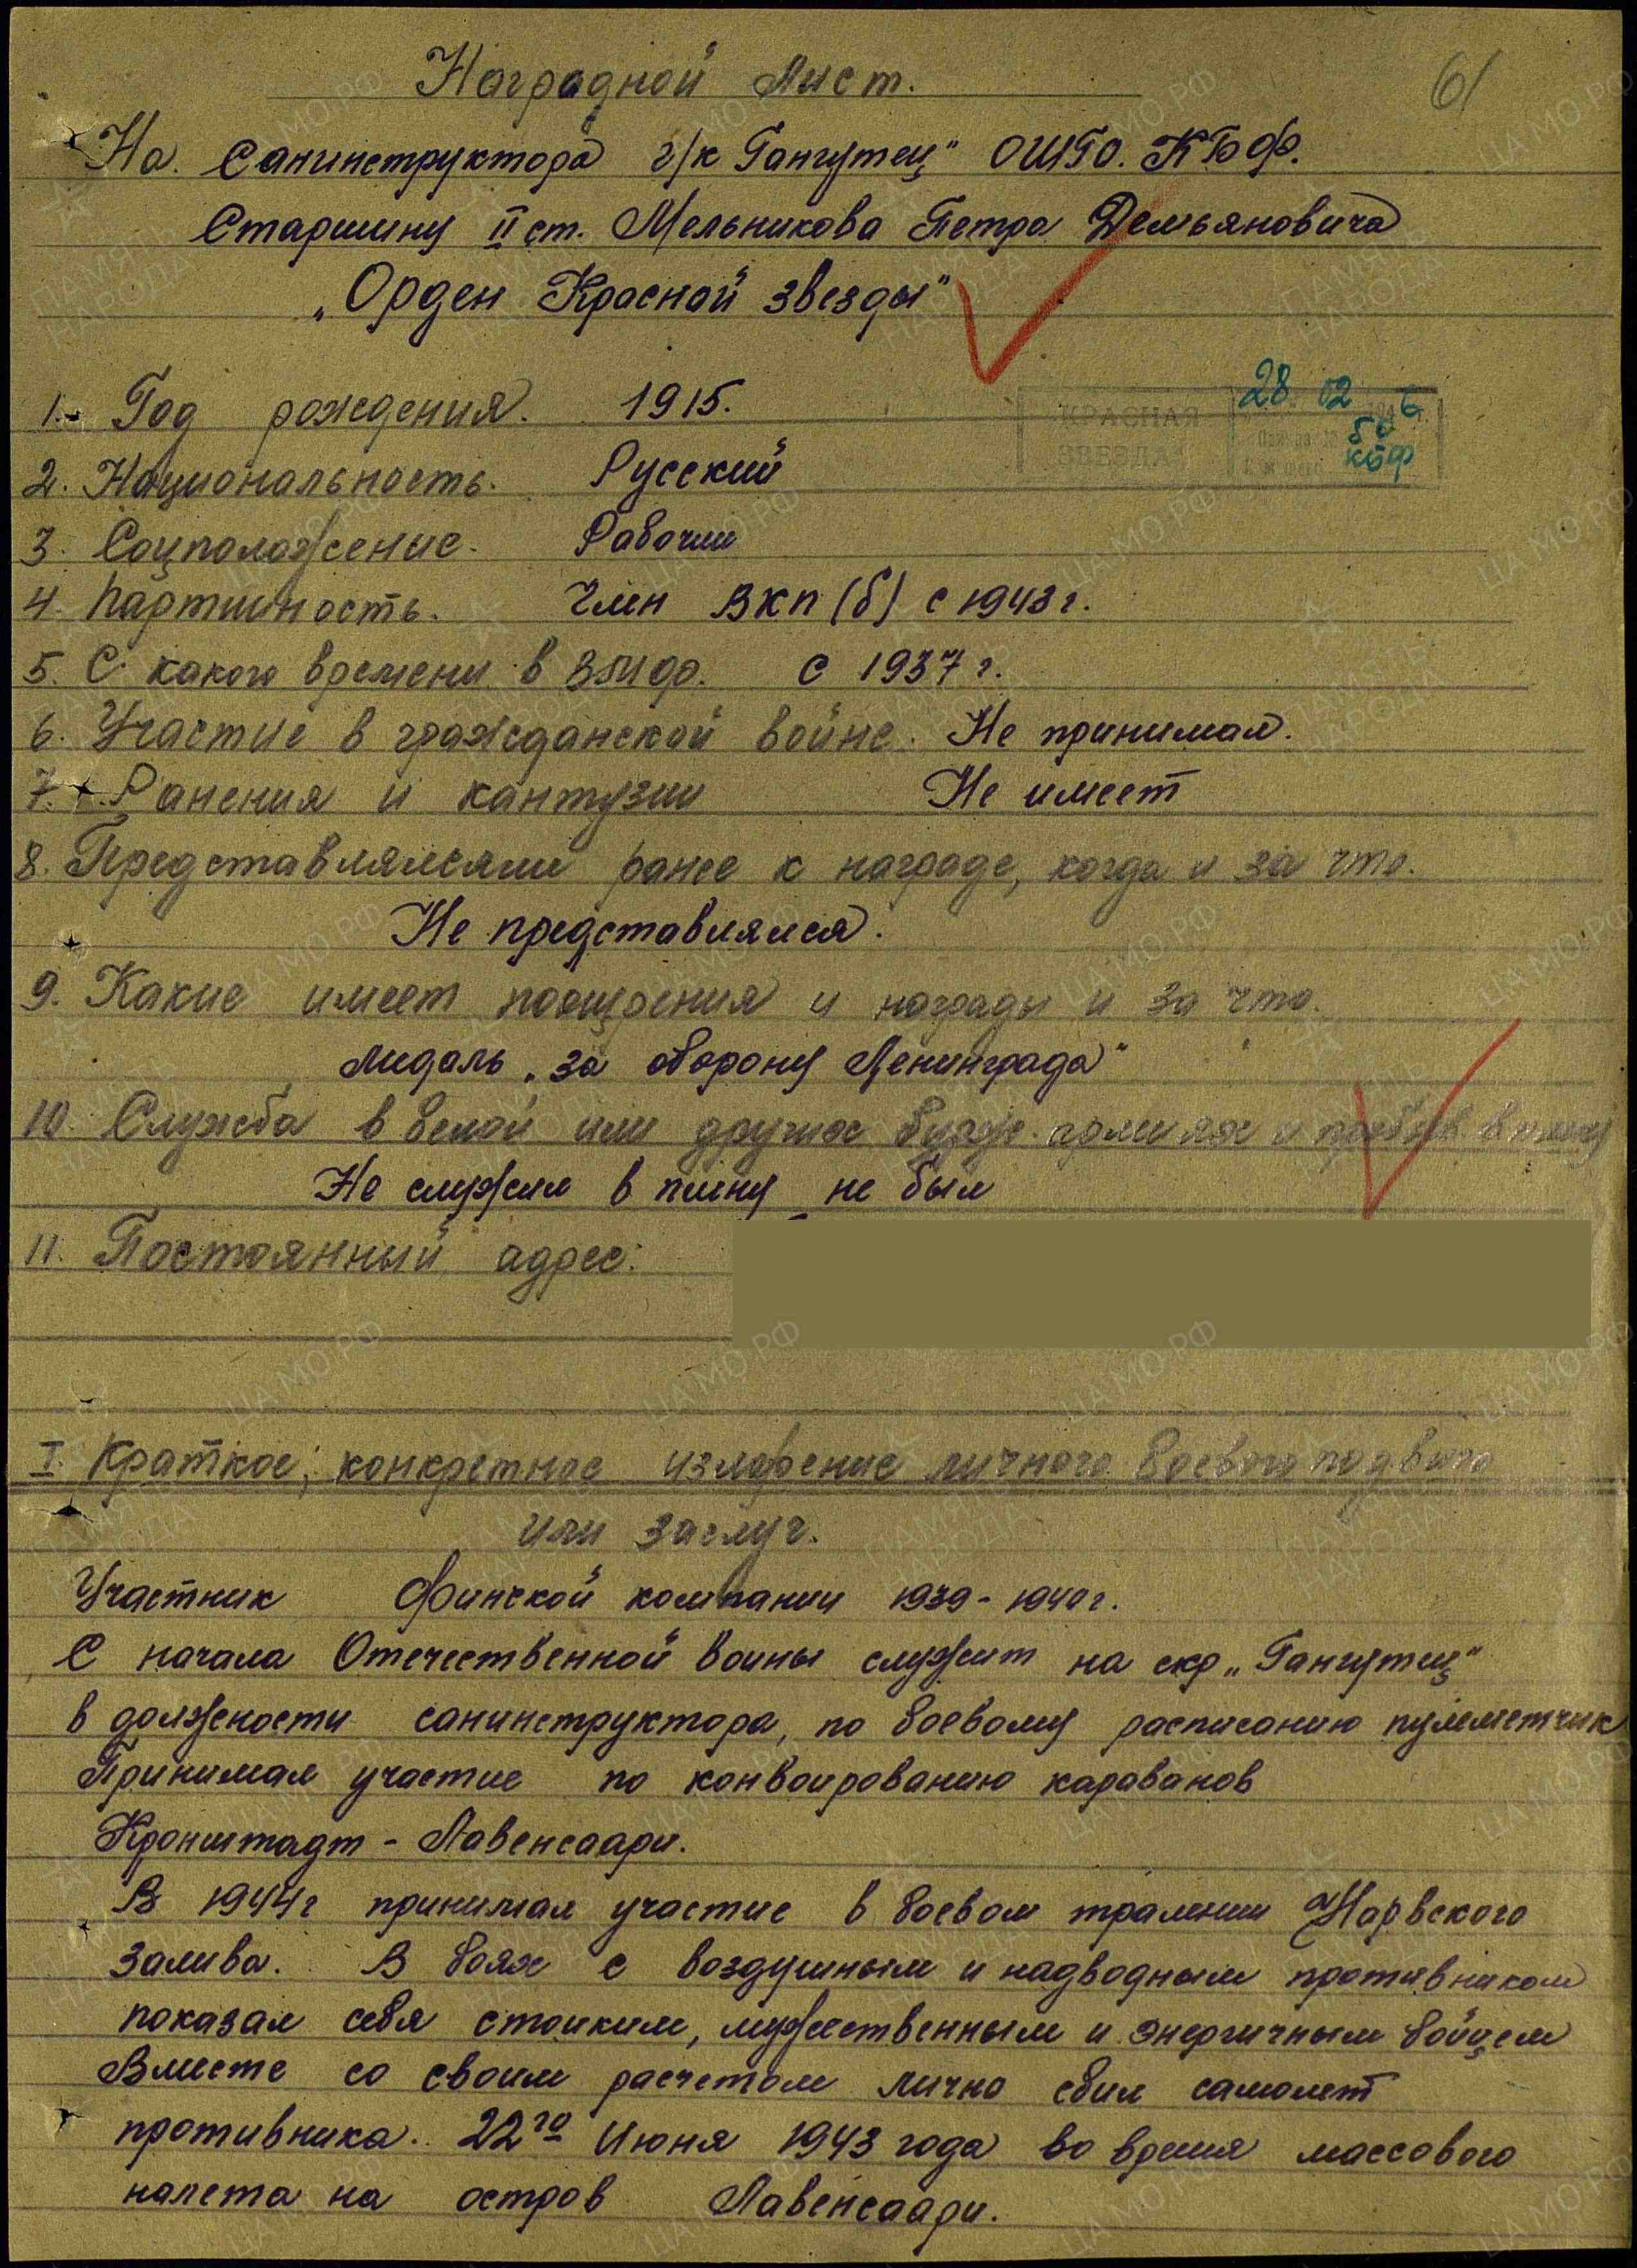 61
Наградной лист.
На Санинструктора г/к "Гангутец" ОШГО. КБФ.
Старшину II ст. Мельникова Петра Демьяновича
„Орден Красной звезды"
28 02 6
КРАСНАЯ
ЗВЕЗДА
КБФ
1. Год рождения. 1915.
2. Национальность. Русский
3. Соцположение. Рабочии
4. Партииность. Член ВКП(б) с 1943 г.
5. С какого времени в ВМФ. с 1937 г.
6. Участие в гражданской войне. Не принимал.
7. Ранения и кантузии Не имеет
8. Представлялсяли ранее к награде, когда и за что.
Не представлялся.
9. Какие имеет поощрения и награды и за что.
Медаль „за оборону Ленинграда"
10. Служба в белой или других бурж. армиях и пребыв. в плену
Не служил в плену не был
11. Постоянный адрес:
I. Краткое, конкретное изложение личного боевого подвига
или заслуг.
Участник Финской компании 1939 - 1940 г.
С начала Отечественной воины служит на скр „Гангутец"
в должности санинструктора, по боевому расписанию пулеметчик
Принимал участие по конвоированию караванов
Кронштадт - Лавенсаари.
В 1944 г принимал участие в боевом тралении Нарвского
залива. В боях с воздушным и надводным противником
показал себя стоиким, мужественным и энергичным бойцем
Вместе со своим расчетом лично сбил самолет
противника. 22го Июня 1943 года во время массового
налета на остров Лавенсаари.
ПАМЯТЬ НАРОДА
ЦА МО РФ